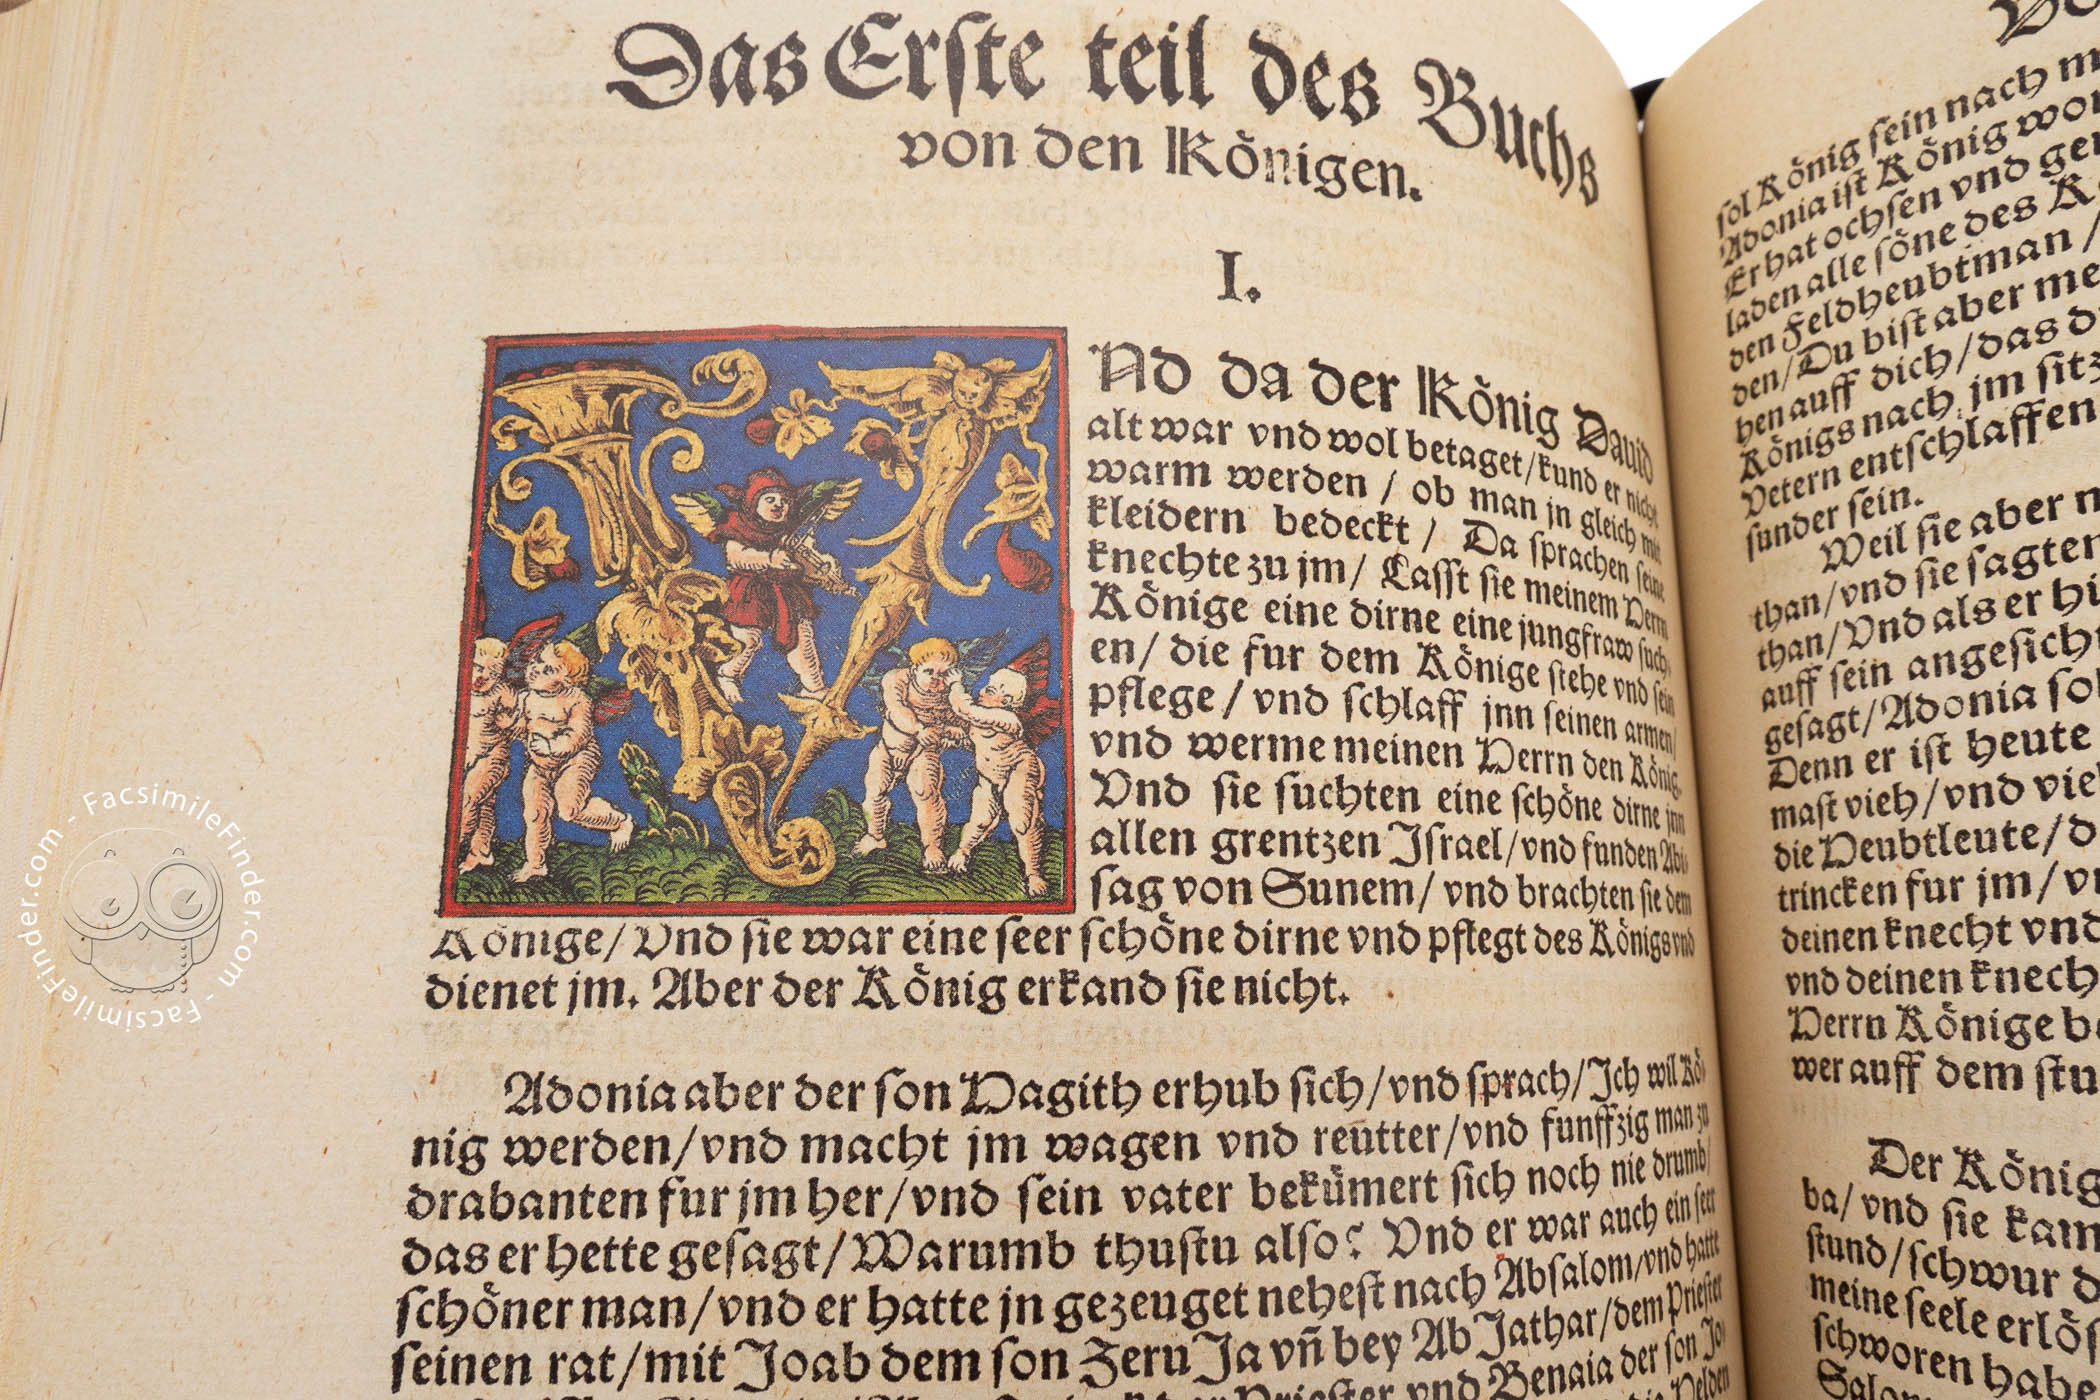 Das Erste teil des Buchs
von den Königen.
I.
VNd da der König Dauid
alt war vnd wol betaget/kund er nicht
warm werden / ob man jn gleich mit
kleidern bedeckt / Da sprachen seine
knechte zu jm/ Lasst sie meinem Herrn
Könige eine dirne eine jungfraw such
en/ die fur dem Könige stehe vnd sein
pflege / vnd schlaff jnn seinen armen/
vnd werme meinen Herrn den König.
Vnd sie suchten eine schöne dirne jnn
allen grentzen Israel/vnd funden Abi
sag von Sunem/ vnd brachten sie dem
Könige/ Vnd sie war eine seer schöne dirne vnd pflegt des Königs vnd
dienet jm. Aber der König erkand sie nicht.
Adonia aber der son Hagith erhub sich/vnd sprach/Ich wil Kö
nig werden/vnd macht jm wagen vnd reutter/vnd funffzig man zu
drabanten fur jm her/vnd sein vater bekümert sich noch nie drumb/
das er hette gesagt/Warumb thustu also? Vnd er war auch ein seer
schöner man/vnd er hatte jn gezeuget nehest nach Absalom/vnd hatte
seinen rat/mit Joab dem son ZeruJa vñ bey AbJathar/dem Priester
Priester vnd Benaia der son Jo
Helden
sol König sein nach m
Adonia ist König wor
Er hat ochsen vnd ge
laden alle söne des K
den Feldheubtman /
den/Du bist aber me
hen auff dich/das d
Königs nach jm sitz
Vetern entschlaffen
sunder sein.
Weil sie aber n
than/vnd sie sagten
than/Vnd als er hi
auff sein angesich
gesagt/Adonia sol
Denn er ist heute
mast vieh/vnd vie
die Heubtleute/d
trincken fur jm/v
deinen knecht vnd
vnd deinen knech
Herrn Könige b
wer auff dem stu
Der König
ba/ vnd sie kam
stund/schwur d
meine seele erlös
schworen habe
Salo
FacsimileFinder.com - FacsimileFinder.com - FacsimileFinder.com